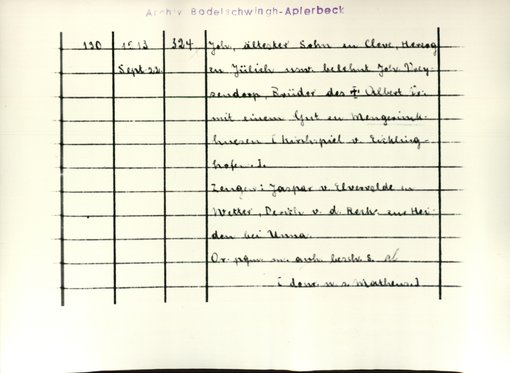 Archiv Bodelschwingh-Aplerbeck
130 1513 324 Joh, ältester Sohn en Cleve, Herzog
Sept 22 en Jülich usw. belehnt Joh. Frey-
sendorp Brüder des † Albert Fr.
mit einem Gut en Mengerinck-
husen (Kirchspiel v. Eichling-
hofen).
Zeugen: Jaspar v. Elverfelde en
Wetter, v. d. Reck en Her-
den bei Unna.
Or. pgm. m. anh. besch. S.
(donr. n. s. Matheus.)